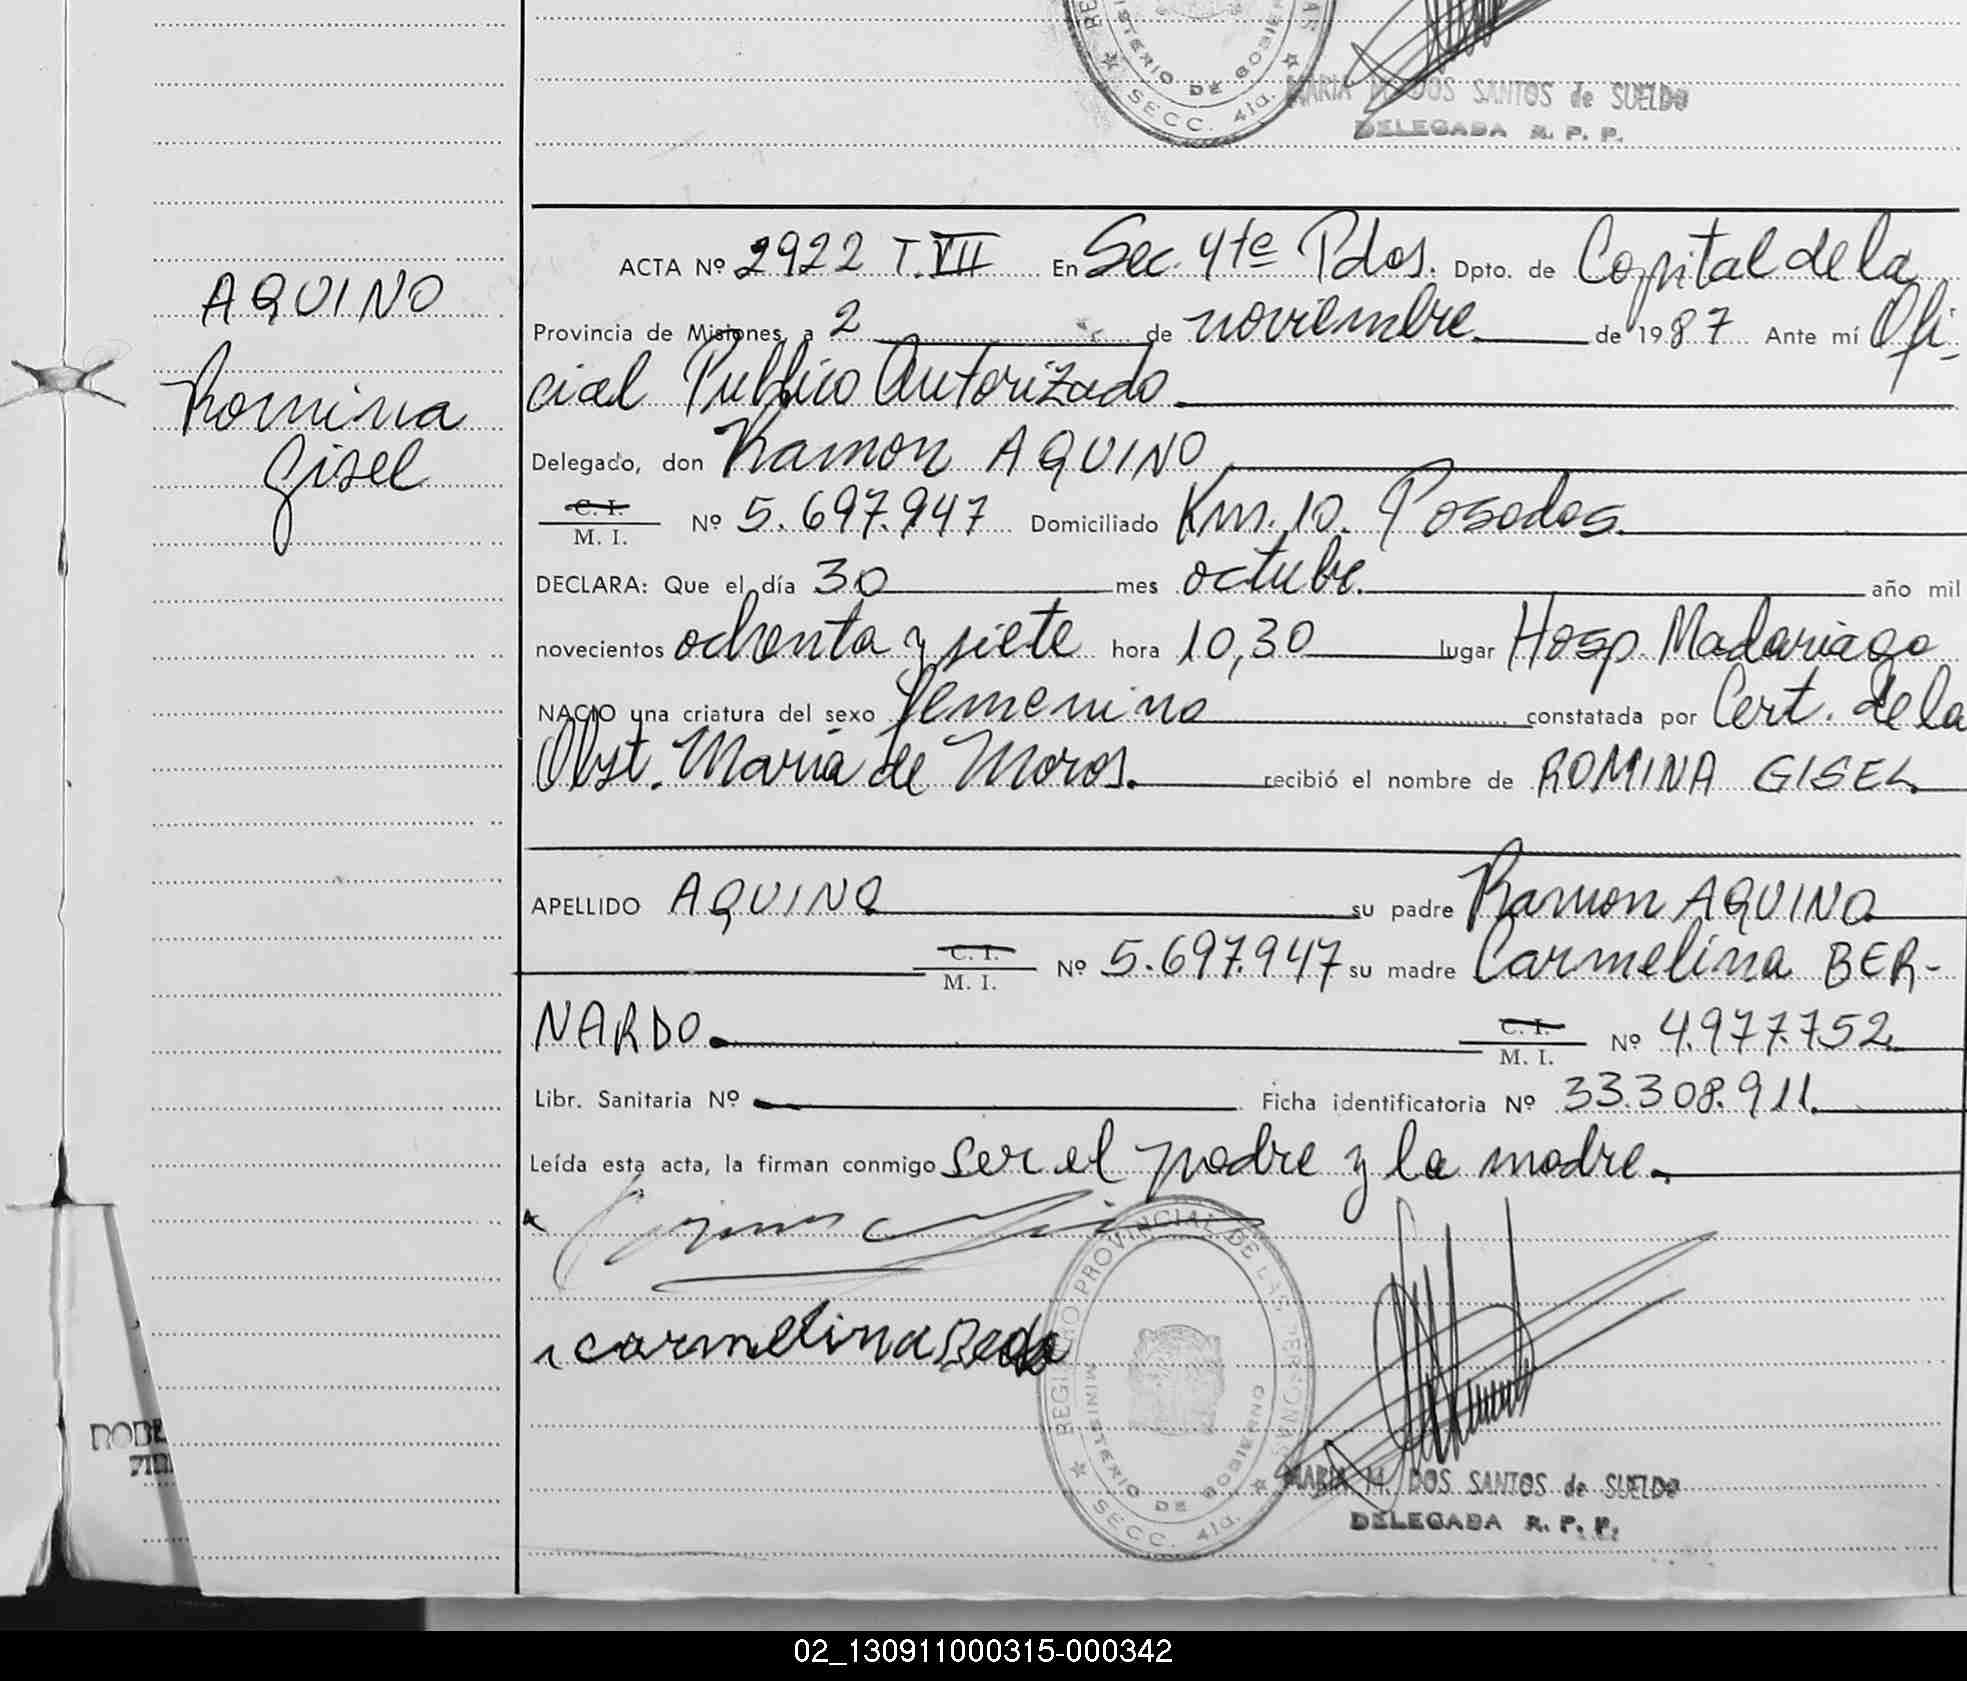 MINISTERIO DE GOBIERNO
SECC. 4ta.
MARIA M. DOS SANTOS de SUELDO
DELEGADA R. P. P.
AQUINO
Romina
Gisel
ACTA Nº 2922 T. VII En Sec. 4te Pdos. Dpto. de Capital de la
Provincia de Misiones, a 2 de noviembre de 1987 Ante mí Ofi-
cial Publico Autorizado
Delegado, don Ramon AQUINO
C. I.
M. I. Nº 5.697.947 Domiciliado Km. 10. Posadas
DECLARA: Que el día 30 mes octubre año mil
novecientos ochenta y siete hora 10,30 lugar Hosp. Madariaga
NACIO una criatura del sexo femenino constatada por Cert. de la
Obst. Maria de Moros. recibió el nombre de ROMINA GISEL
APELLIDO AQUINO su padre Ramon AQUINO
C. I.
M. I. Nº 5.697.947 su madre Carmelina BER-
NARDO. C. I.
M. I. Nº 4.977.752
Libr. Sanitaria Nº Ficha identificatoria Nº 33.308.911
Leída esta acta, la firman conmigo ser el padre y la madre.
carmelina
REGISTRO PROVINCIAL DE LAS PERSONAS
MINISTERIO DE GOBIERNO
SECC. 4ta.
MARIA M. DOS SANTOS de SUELDO
DELEGADA R. P. P.
02_130911000315-000342